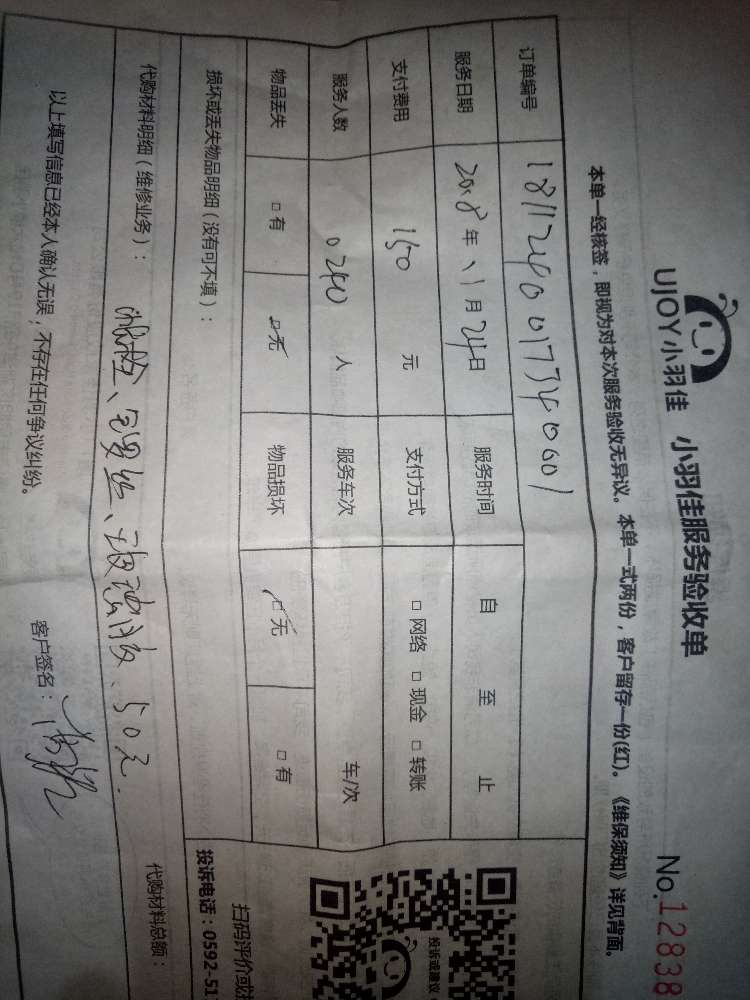 UJOY小羽佳 小羽佳服务验收单 No.12838
本单一经核签，即视为对本次服务验收无异议。本单一式两份，客户留存一份(红)。《维保须知》详见背面。
订单编号 1811240017340001
服务日期 2018年11月24日 服务时间 自 至 止
支付费用 150 元 支付方式 □ 网络 □ 现金 □ 转账
服务人数 0240 人 服务车次 车/次
物品丢失 □ 有 ☑ 无 物品损坏 ☑ 无 □ 有
损坏或丢失物品明细（没有可不填）：
扫码评价或
投诉或建议
投诉电话：0592-51
代购材料明细（维修业务）： 、 、玻璃胶、50元. 代购材料总额：
以上填写信息已经本人确认无误，不存在任何争议纠纷。 客户签名：